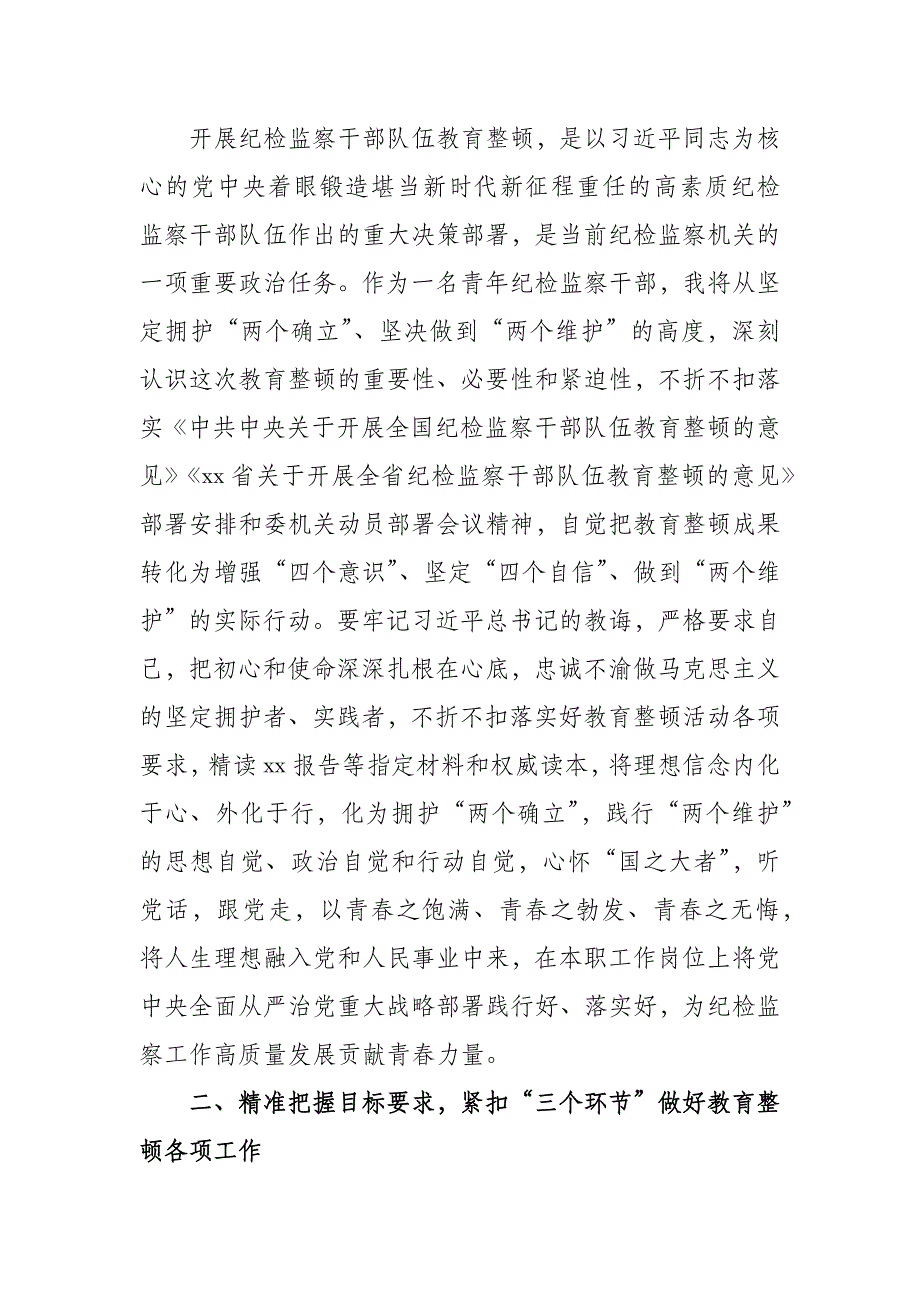 开展纪检监察干部队伍教育整顿，是以习近平同志为核
心的党中央着眼锻造堪当新时代新征程重任的高素质纪检
监察干部队伍作出的重大决策部署，是当前纪检监察机关的
一项重要政治任务。作为一名青年纪检监察干部，我将从坚
定拥护“两个确立”、坚决做到“两个维护”的高度，深刻
认识这次教育整顿的重要性、必要性和紧迫性，不折不扣落
实《中共中央关于开展全国纪检监察干部队伍教育整顿的意
见》《xx 省关于开展全省纪检监察干部队伍教育整顿的意见》
部署安排和委机关动员部署会议精神，自觉把教育整顿成果
转化为增强“四个意识”、坚定“四个自信”、做到“两个维
护”的实际行动。要牢记习近平总书记的教诲，严格要求自
己，把初心和使命深深扎根在心底，忠诚不渝做马克思主义
的坚定拥护者、实践者，不折不扣落实好教育整顿活动各项
要求，精读 xx 报告等指定材料和权威读本，将理想信念内化
于心、外化于行，化为拥护“两个确立”，践行“两个维护”
的思想自觉、政治自觉和行动自觉，心怀“国之大者”，听
党话，跟党走，以青春之饱满、青春之勃发、青春之无悔，
将人生理想融入党和人民事业中来，在本职工作岗位上将党
中央全面从严治党重大战略部署践行好、落实好，为纪检监
察工作高质量发展贡献青春力量。
二、精准把握目标要求，紧扣“三个环节”做好教育整
顿各项工作